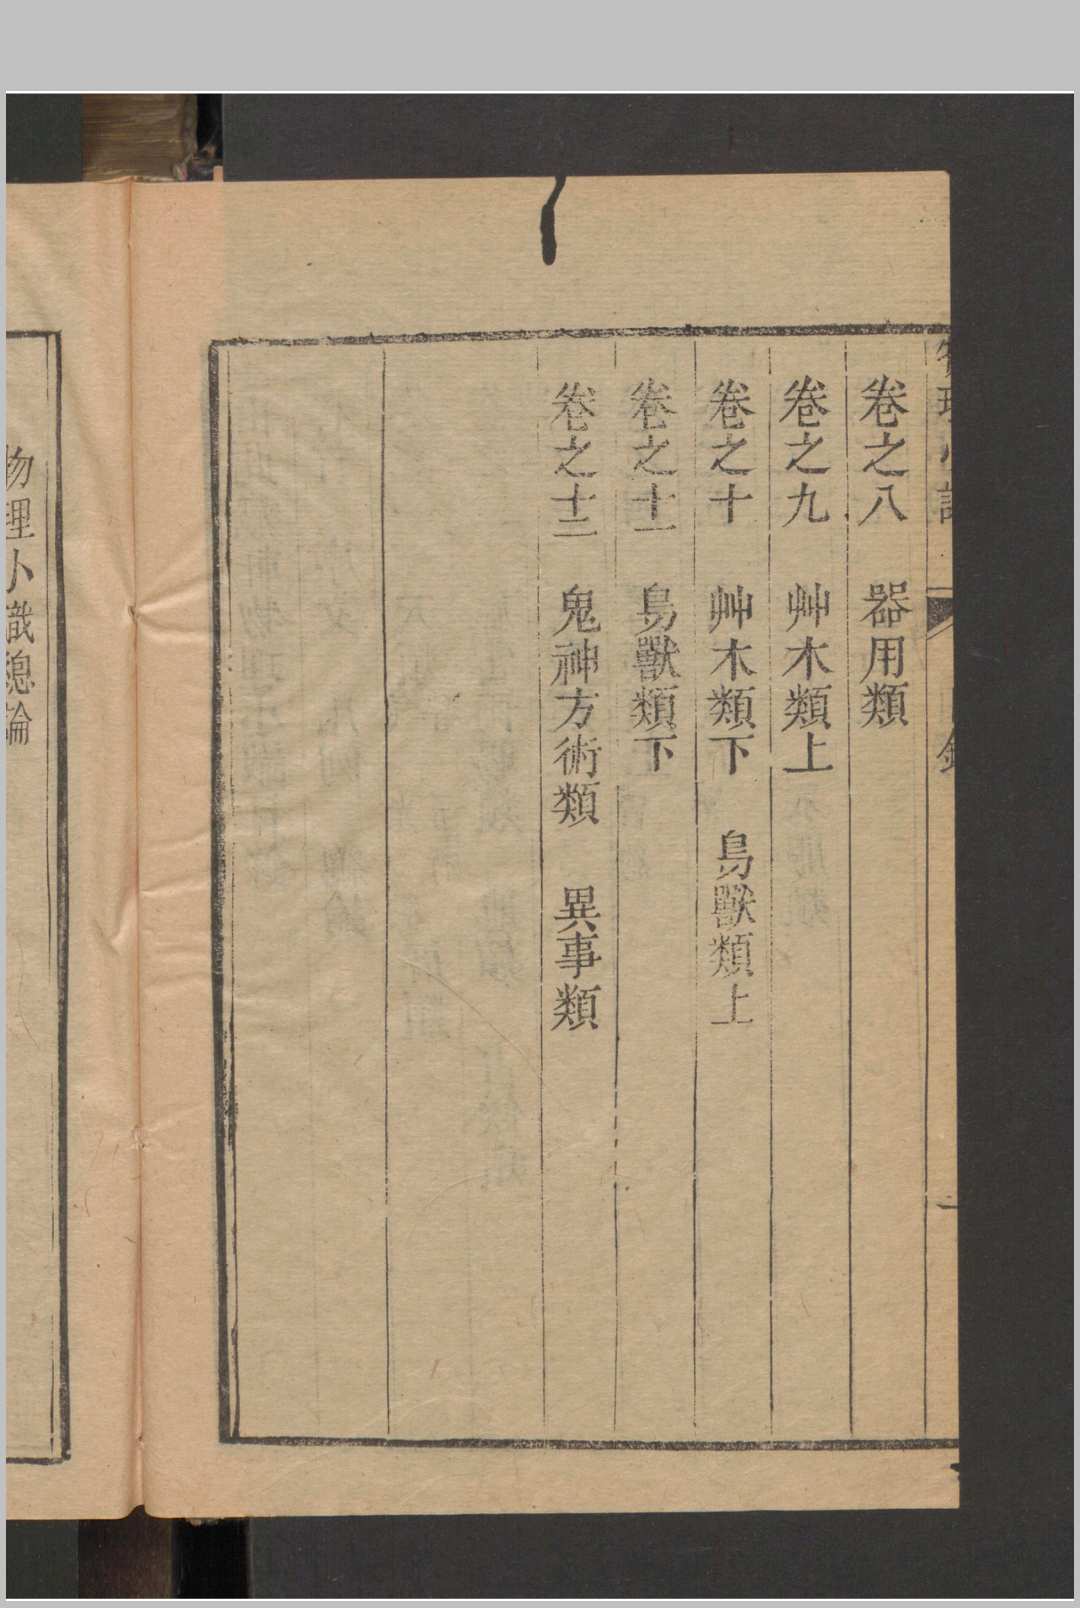 卷之八 器用類
卷之九 艸木類上
卷之十 艸木類下 鳥獸類上
卷之十一 鳥獸類下
卷之十二 鬼神方術類 異事類
物理小識總論